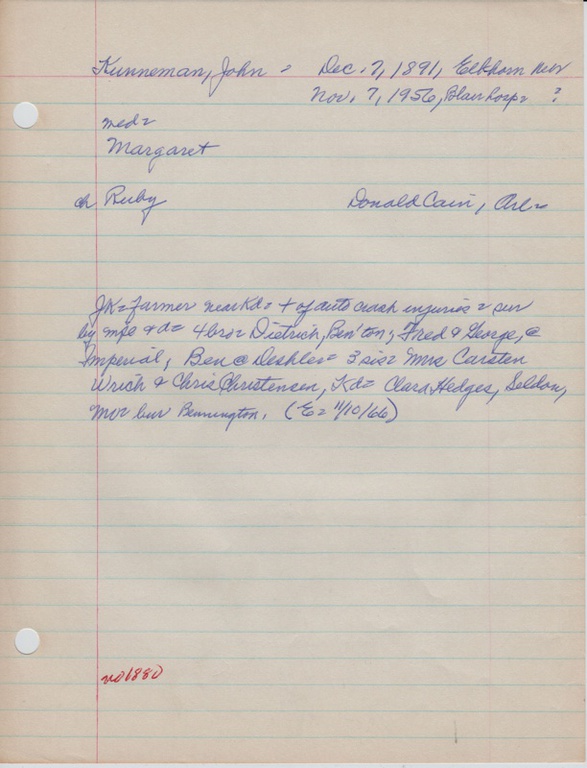 Kunneman, John = Dec. 7, 1891, Elkhorn
Nov. 7, 1956, Blair hosp = ?
med =
Margaret
ch Ruby Donald Cain, Arl =
JK = farmer near Kd = + of auto crash injuries = sur
by mps & d = 4 bro = Dietrich, Ben'ton; Fred & George, @
Imperial; Ben @ Deshler = 3 sis = Mrs Carsten
Wrich & Chris Christensen, Kd = Clara Hedges, Seldon,
Mo = bur Bennington. (E = 11/10/66)
no 1880